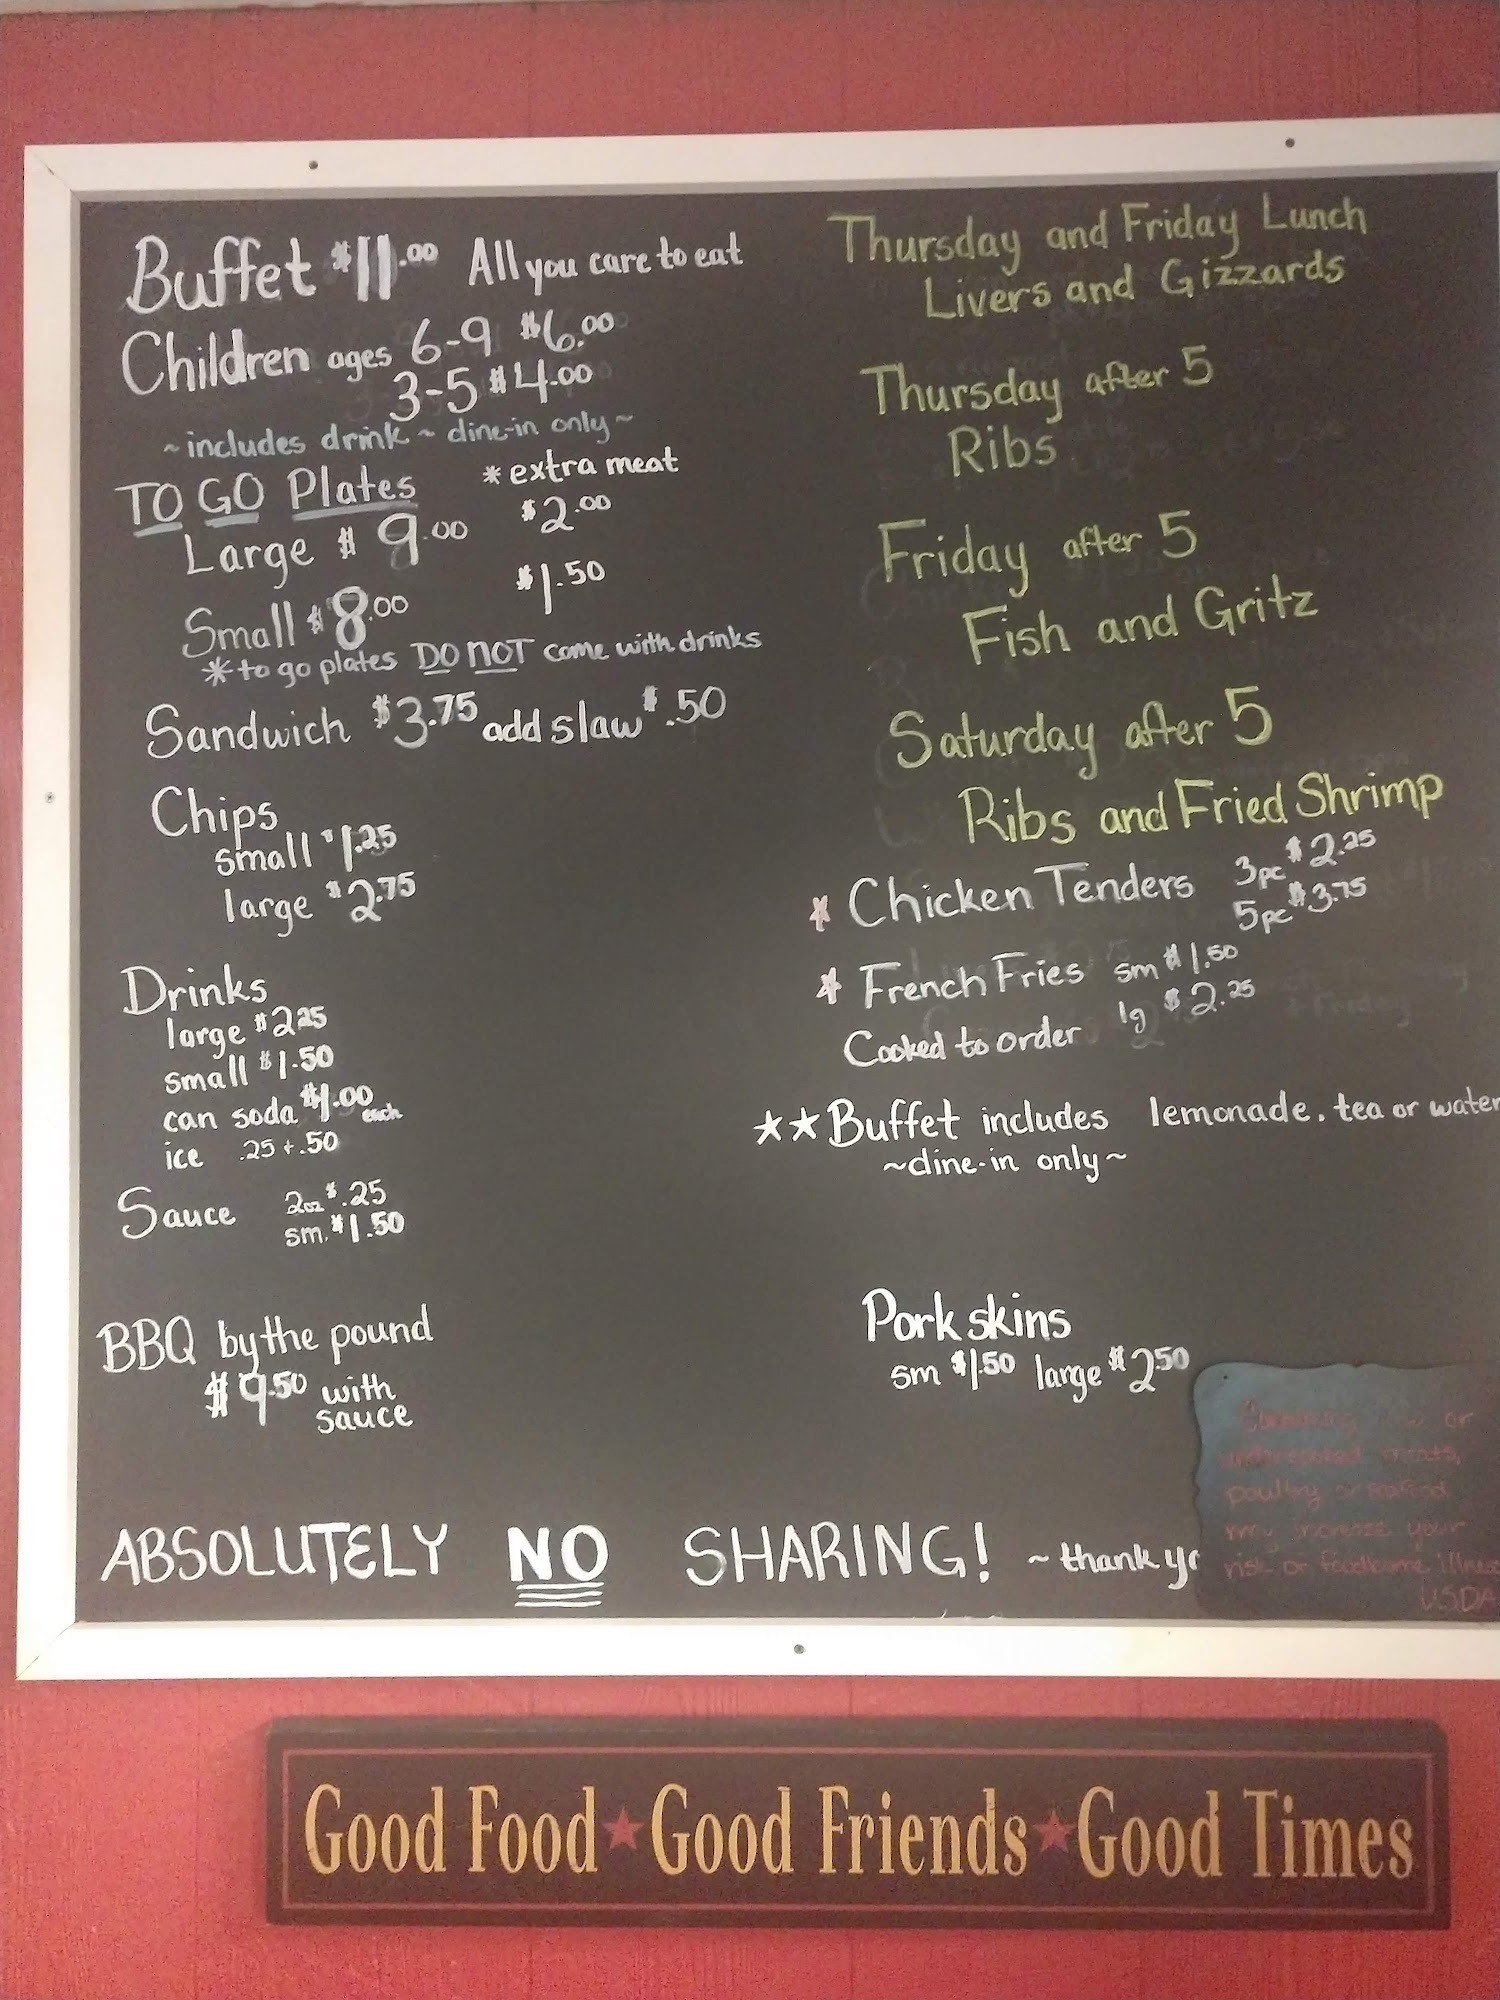 Buffet $11.00 All you care to eat
Children ages 6-9 $6.00
3-5 $4.00
~includes drink~ dine-in only~
TO GO Plates *extra meat
Large $9.00 $2.00
Small $8.00 $1.50
*to go plates DO NOT come with drinks
Sandwich $3.75 add slaw $.50
Chips
small $1.25
large $2.75
Drinks
large $2.25
small $1.50
can soda $1.00 each
ice .25+.50
Sauce 2oz $.25
sm. $1.50
BBQ by the pound
$9.50 with
sauce
Thursday and Friday Lunch
Livers and Gizzards
Thursday after 5
Ribs
Friday after 5
Fish and Gritz
Saturday after 5
Ribs and Fried Shrimp
* Chicken Tenders 3pc $2.25
5pc $3.75
* French Fries sm $1.50
Cooked to order lg $2.25
★★Buffet includes lemonade, tea or water
~dine-in only~
Pork skins
sm $1.50 large $2.50
ABSOLUTELY NO SHARING! ~thank yo
Consuming or
undercooked meats,
poultry or seafood
may increase your
risk or foodborne illness
USDA
Good Food★Good Friends★Good Times